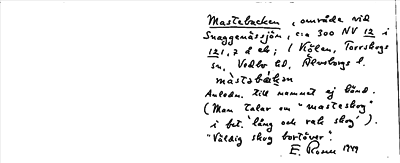 Mastebacken, område vid
Snaggenässjön, c:a 300 NV 12 i
121,7 å ek; i Kölen, Torrskogs
sn, Vedbo hd, Älvsborgs l.
màstəbákən
Anledn. till namnet ej känd.
(Man talar om "masteskog"
i bet. 'lång och rak skog').
"Väldig skog bortöver".
E. Rosen 1949